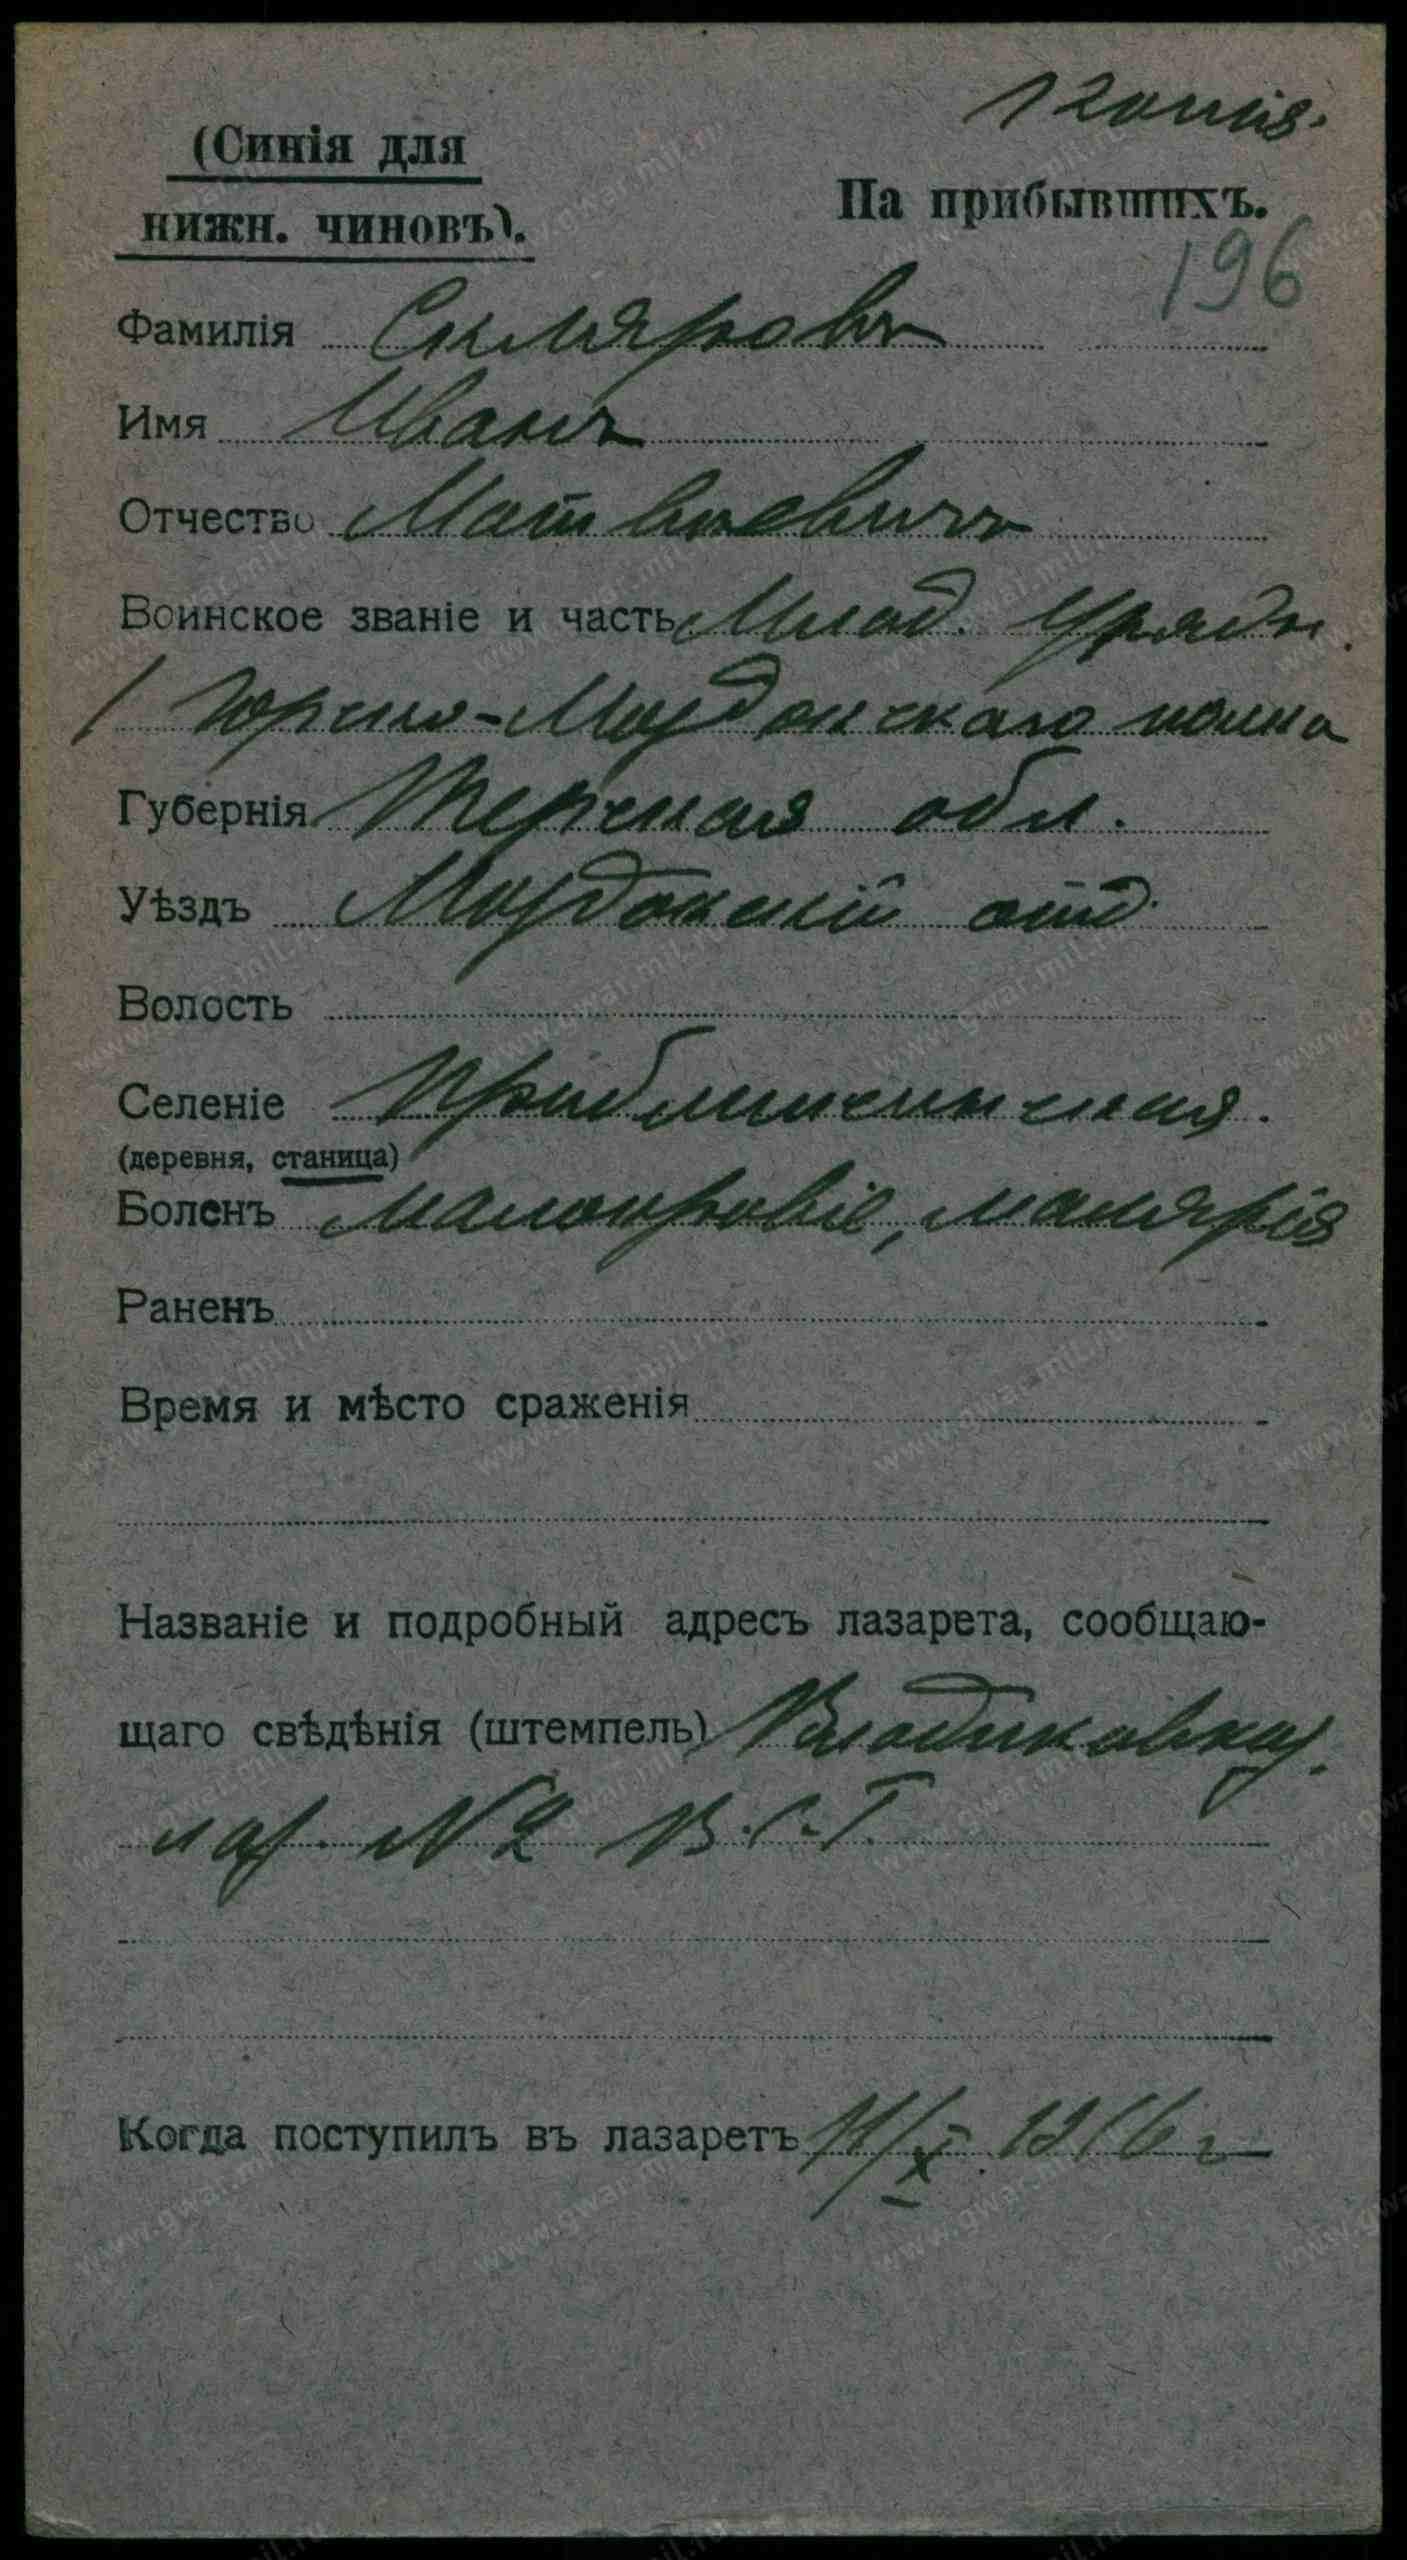 1 копія.
(Синія для
нижн. чиновъ).
На прибывшихъ.
196
Фамилія Скляровъ
Имя Иванъ
Отчество Матвѣевичъ
Воинское званіе и часть Млад. Урядн.
1 Горско-Моздокскаго полка
Губернія Терская обл.
Уѣздъ Моздокскій отд.
Волость
Селеніе Приближненская.
(деревня, станица)
Боленъ малокровіе, малярія
Раненъ
Время и мѣсто сраженія
Названіе и подробный адресъ лазарета, сообщаю-
щаго свѣдѣнія (штемпель) Владикавказ.
лаз. № 2 В.С.Г.
Когда поступилъ въ лазаретъ 11/X 1916 г